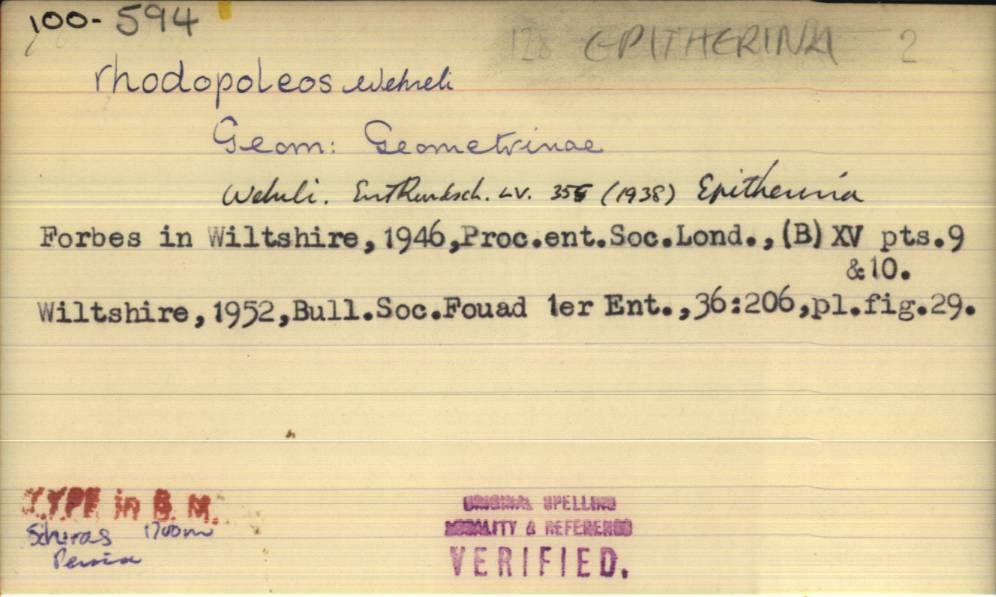 100-594
128 EPITHERINA 2
rhodopoleos Wehrli
Geom: Geometrinae
Wehrli. Ent Rundsch. LV. 355 (1938) Epitherina
Forbes in Wiltshire, 1946, Proc.ent.Soc.Lond., (B) XV pts.9
&10.
Wiltshire, 1952, Bull.Soc.Fouad 1er Ent., 36:206, pl.fig.29.
TYPE in B. M.
Schiras 1700m
Persia
ORIGINAL SPELLING
LOCALITY & REFERENCE
VERIFIED.